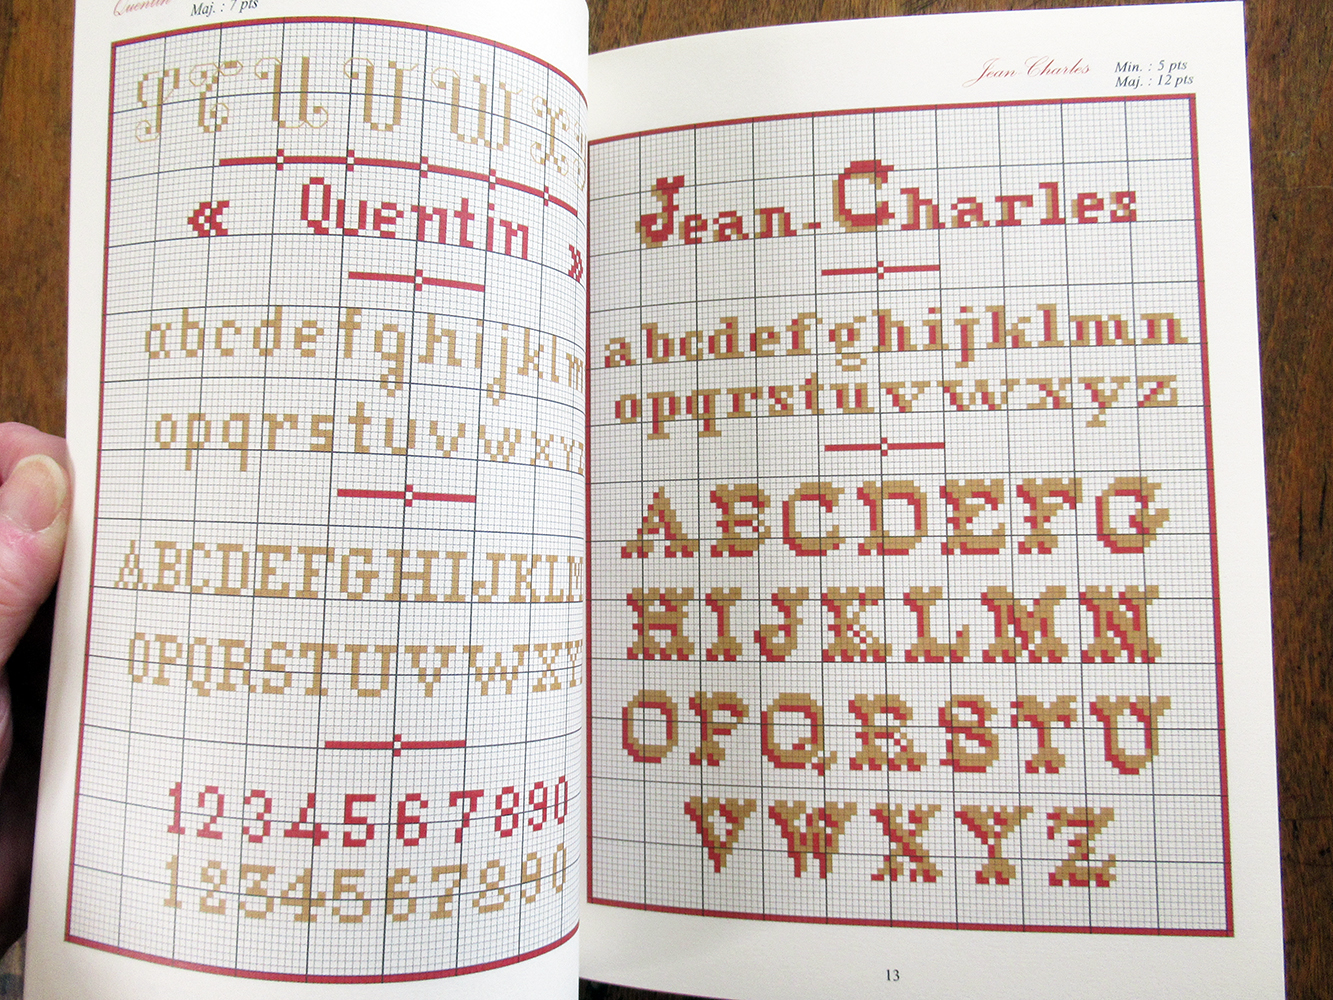 Quentin
Maj. : 7 pts
T U V W X
« Quentin »
abcdefghijklm
opqrstuvwxyz
ABCDEFGHIJKLM
OPQRSTUVWXY
1234567890
1234567890
Jean-Charles
Min. : 5 pts
Maj. : 12 pts
Jean-Charles
abcdefghijklmn
opqrstuvwxyz
ABCDEFG
HIJKLMN
OPQRSTU
VWXYZ
13